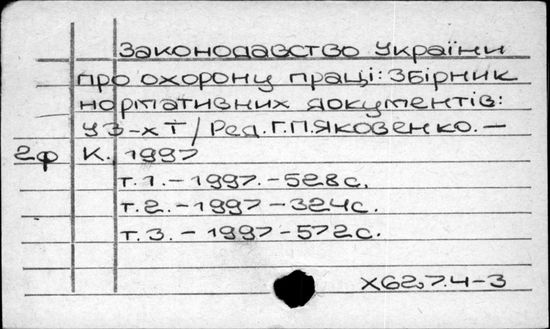 Законодавство України
про охорону праці: Збірник
нормативних документів:
У 3-х т / Ред. Г.П. Яковенко. –
2ф К. 1997
т. 1. – 1997. – 528 с.
т. 2. – 1997 – 324 с.
т. 3. – 1997 – 572 с.
Х62,7.4-3